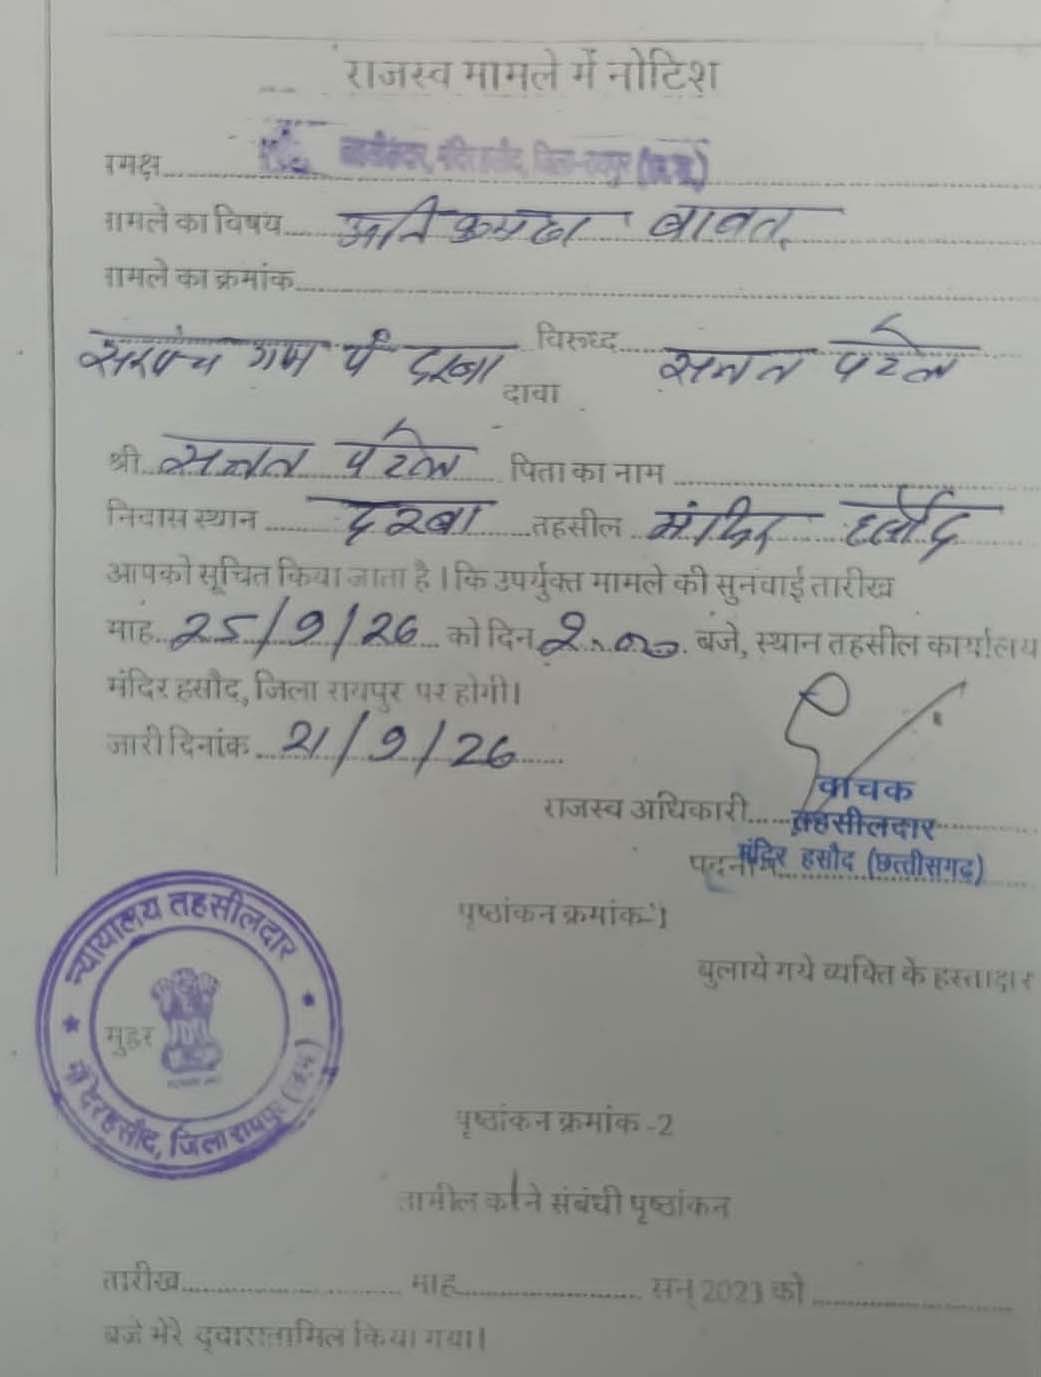 राजस्व मामले में नोटिश
समक्ष तहसीलदार, मंदिर हसौद, जिला-रायपुर (छ.ग.)
मामले का विषय अतिक्रमण बाबत्
मामले का क्रमांक
सरपंच ग्राम पं दरबा विरूध्द सनत पटेल
दावा
श्री सनत पटेल पिता का नाम
निवास स्थान दरबा तहसील मंदिर हसौद
आपको सूचित किया जाता है। कि उपर्युक्त मामले की सुनवाई तारीख
माह 25/9/26 को दिन 2.00 बजे, स्थान तहसील कार्यालय
मंदिर हसौद, जिला रायपुर पर होगी।
जारी दिनांक 21/9/26
वाचक
राजस्व अधिकारी तहसीलदार
पदनाम मंदिर हसौद (छत्तीसगढ़)
पृष्ठांकन क्रमांक-1
न्यायालय तहसीलदार
बुलाये गये व्यक्ति के हस्ताक्षर
मुहर
मंदिरहसौद, जिला रायपुर (छ.ग.)
पृष्ठांकन क्रमांक -2
तामील करने संबंधी पृष्ठांकन
तारीख माह सन् 2023 को
बजे मेरे द्वारा तामिल किया गया।